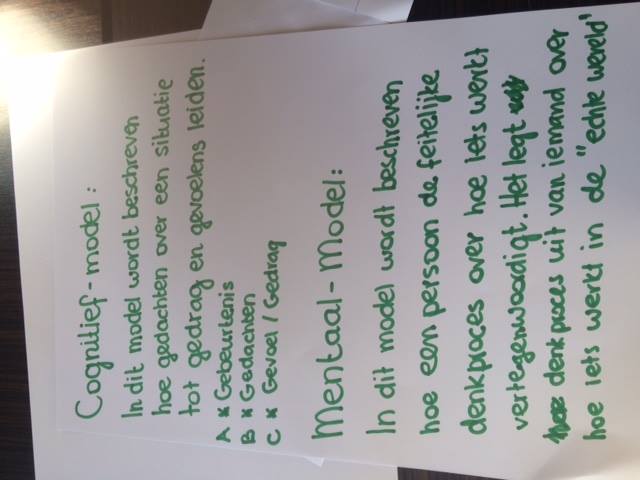 Cognitief-model:
In dit model wordt beschreven
hoe gedachten over een situatie
tot gedrag en gevoelens leiden.
A * Gebeurtenis
B * Gedachten
C * Gevoel / Gedrag
Mentaal-Model:
In dit model wordt beschreven
hoe een persoon de feitelijke
denkproces over hoe iets werkt
vertegenwoordigt. Het legt
denkproces uit van iemand over
hoe iets werkt in de "echte wereld"